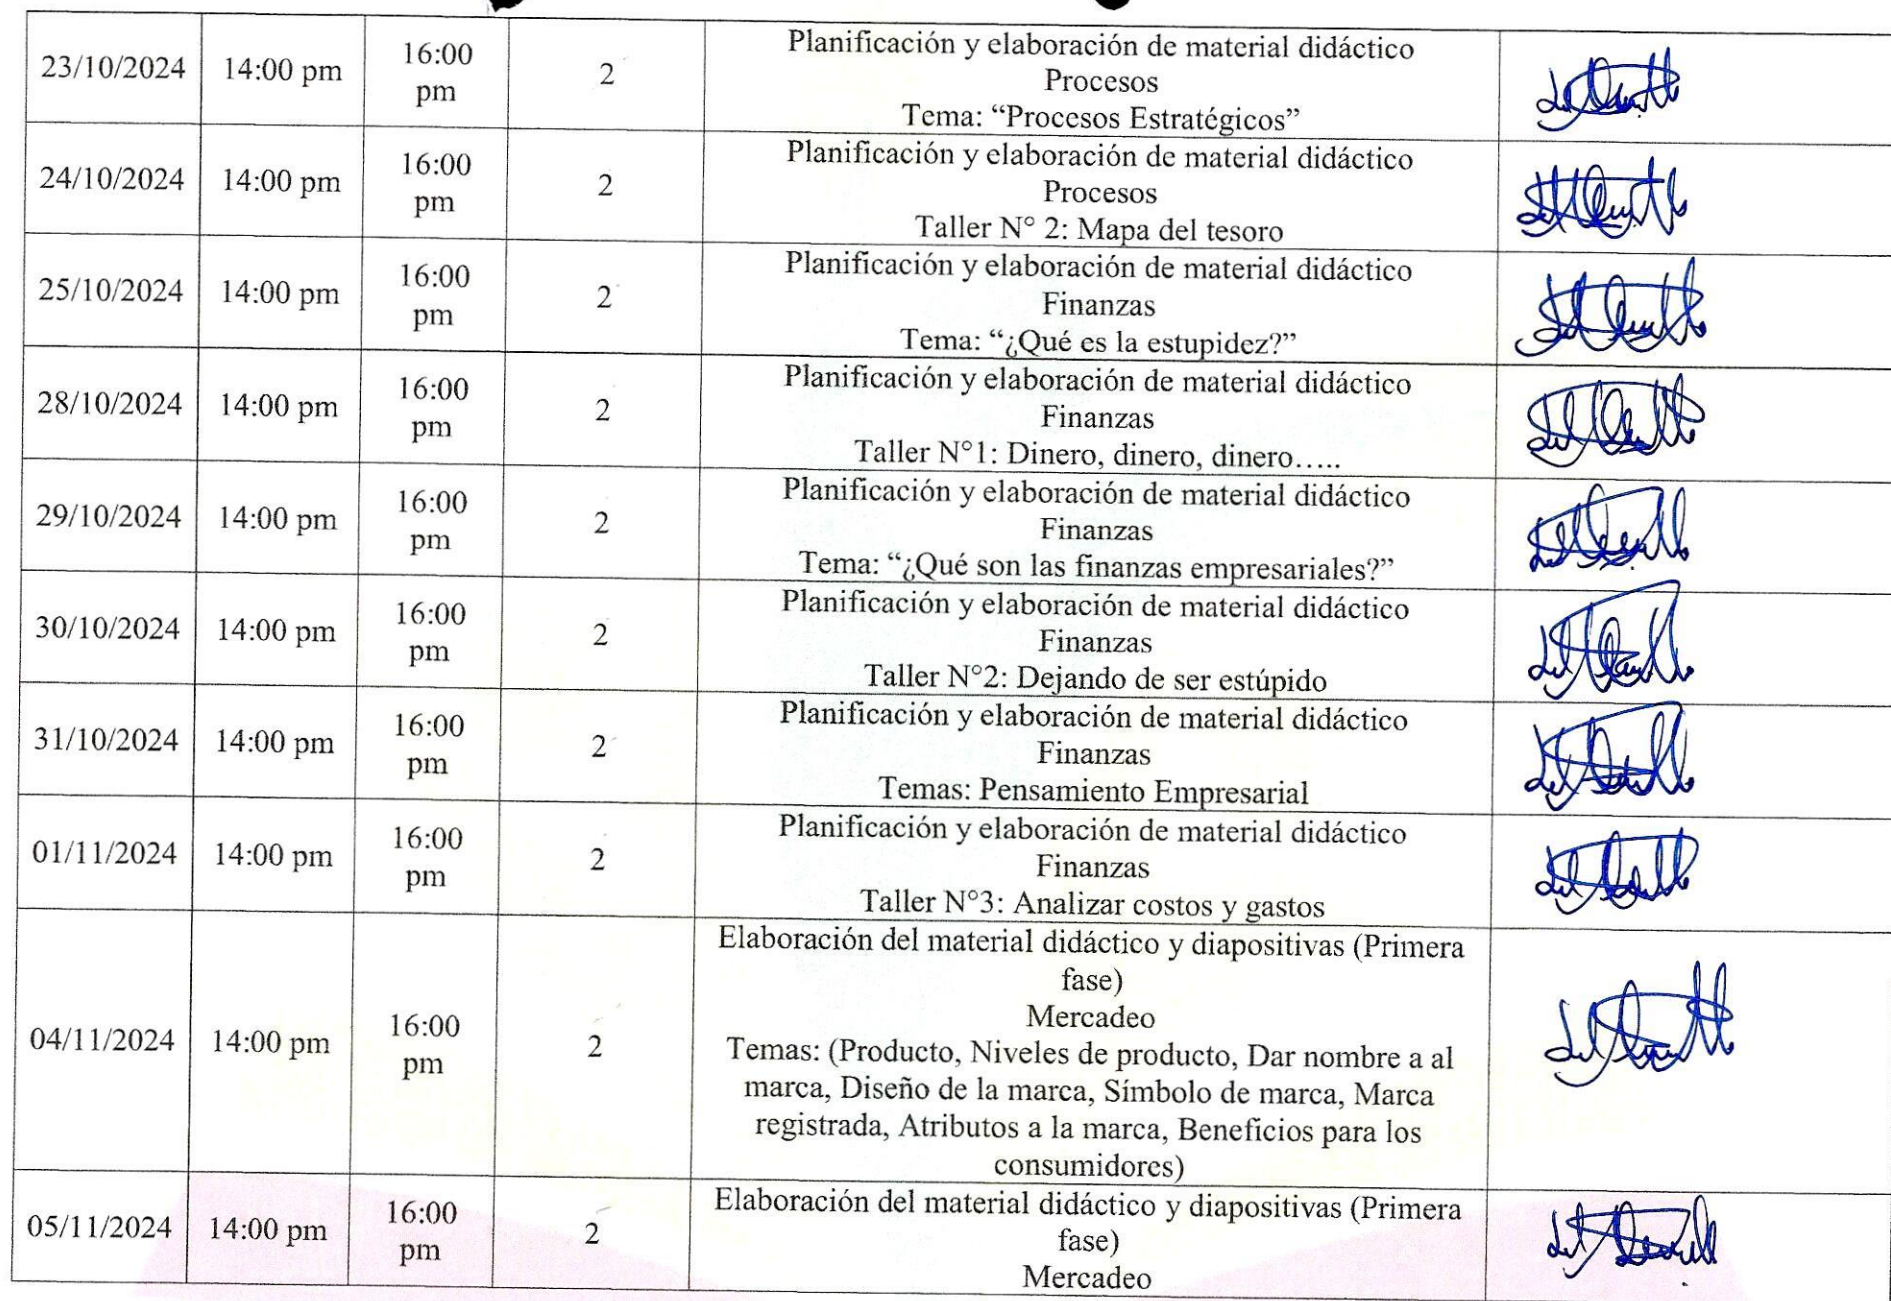 23/10/2024 14:00 pm 16:00 pm 2 Planificación y elaboración de material didáctico
Procesos
Tema: “Procesos Estratégicos”
24/10/2024 14:00 pm 16:00 pm 2 Planificación y elaboración de material didáctico
Procesos
Taller N° 2: Mapa del tesoro
25/10/2024 14:00 pm 16:00 pm 2 Planificación y elaboración de material didáctico
Finanzas
Tema: “¿Qué es la estupidez?”
28/10/2024 14:00 pm 16:00 pm 2 Planificación y elaboración de material didáctico
Finanzas
Taller N°1: Dinero, dinero, dinero…..
29/10/2024 14:00 pm 16:00 pm 2 Planificación y elaboración de material didáctico
Finanzas
Tema: “¿Qué son las finanzas empresariales?”
30/10/2024 14:00 pm 16:00 pm 2 Planificación y elaboración de material didáctico
Finanzas
Taller N°2: Dejando de ser estúpido
31/10/2024 14:00 pm 16:00 pm 2 Planificación y elaboración de material didáctico
Finanzas
Temas: Pensamiento Empresarial
01/11/2024 14:00 pm 16:00 pm 2 Planificación y elaboración de material didáctico
Finanzas
Taller N°3: Analizar costos y gastos
04/11/2024 14:00 pm 16:00 pm 2 Elaboración del material didáctico y diapositivas (Primera
fase)
Mercadeo
Temas: (Producto, Niveles de producto, Dar nombre a al
marca, Diseño de la marca, Símbolo de marca, Marca
registrada, Atributos a la marca, Beneficios para los
consumidores)
05/11/2024 14:00 pm 16:00 pm 2 Elaboración del material didáctico y diapositivas (Primera
fase)
Mercadeo